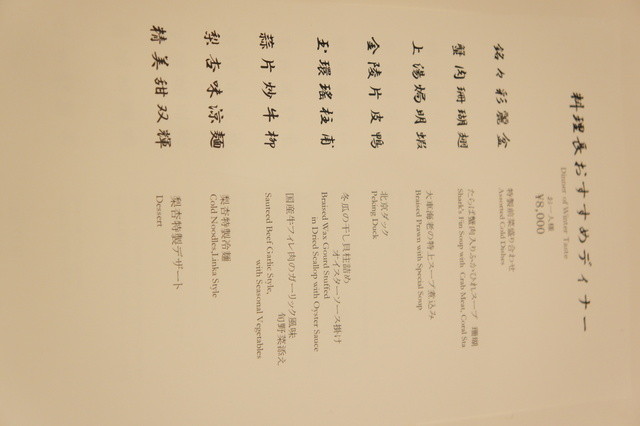 料理長おすすめディナー
Dinner of Winter Taste
お一人様
¥8,000
銘々彩麗
特製前菜盛り合わせ
Assorted Cold Dishes
蟹肉珊瑚翅
たらば蟹肉入りふかひれスープ 珊瑚
Shark's Fin Soup with Crab Meat, Coral Sea
上湯焗明蝦
大車海老の特上スープ煮込み
Braised Prawn with Special Soup
金陵片皮鴨
北京ダック
Peking Duck
玉環瑤柱甫
冬瓜の干し貝柱詰め
オイスターソース掛け
Braised Wax Gourd Stuffed
in Dried Scallop with Oyster Sauce
蒜片炒牛柳
国産牛フィレ肉のガーリック風味
旬野菜添え
Sauteed Beef Garlic Style,
with Seasonal Vegetables
梨杏味涼麺
梨杏特製冷麺
Cold Noodles,Linka Style
精美甜双輝
梨杏特製デザート
Dessert